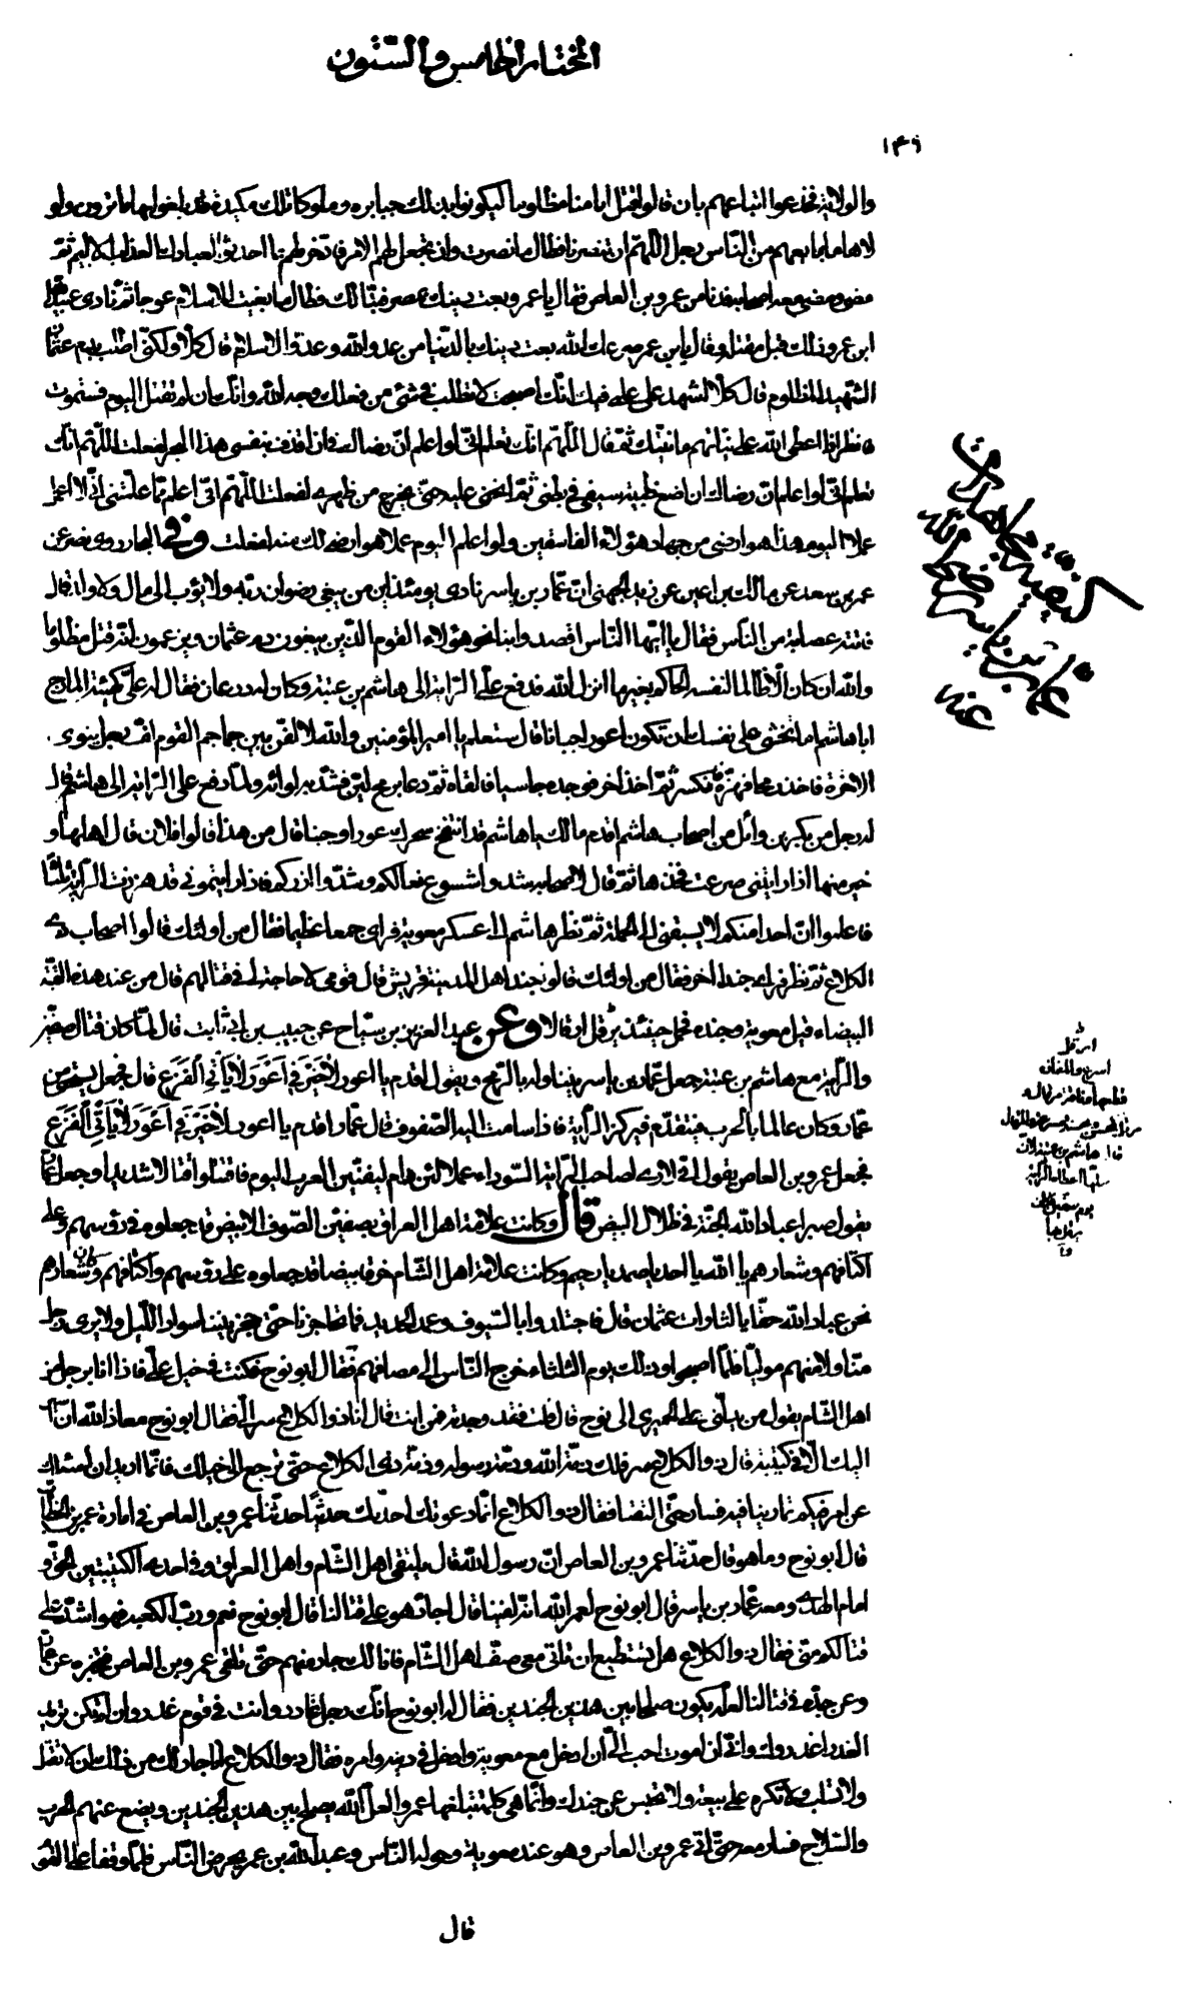 المختار الخامس والستون
١٤٩
والولاية فخدعوا اتباعهم بان قالوا قتل امامنا مظلوما ليكونوا بذلك جبابرة وملوكا تلك مكيدة قد بلغوا بها ما ترون ولو
لا هي ما بايعهم من الناس رجل اللهم ان تنصرنا فطال ما نصرت وان تجعل لهم الامر فادخر لهم بما احدثوا لعبادك العذاب الاليم ثم
مضى ومضى معه اصحابه فدنا من عمرو بن العاص فقال يا عمرو بعت دينك بمصر فتبا لك فطال ما بغيت للاسلام عوجا ثم نادى عبيد الله
ابن عمر وذلك قبل مقتله فقال يا بن عمر صرعك الله بعت دينك بالدنيا من عدو الله وعدو الاسلام قال كلا ولكني اطلب بدم عثمان
الشهيد المظلوم قال كلا اشهد على علمي فيك انك اصبحت لا تطلب في شئ من فعلك وجه الله وانك ان لم تقتل اليوم فستموت
فانظر اذا اعطى الله على نياتهم ما نيتك ثم قال اللهم انك تعلم اني لو اعلم ان رضاك في ان اقذف بنفسي هذا البحر لفعلت اللهم انك
تعلم اني لو اعلم ان رضاك ان اضع ظبة سيفي في بطني ثم انحني عليه حتى يخرج من ظهري لفعلت اللهم اني اعلم مما علمتني اني لا اعمل
عملا اليوم هذا هو ارضى من جهاد هؤلاء الفاسقين ولو اعلم اليوم عملا هو ارضى لك منه لفعلت وفي البحار روى نصر عن
عمر بن سعد عن مالك بن اعين عن زيد الجهني ان عمار بن ياسر نادى يومئذ اين من يبغي رضوان ربه ولا يؤب الى مال ولا ولد قال
فاتته عصابة من الناس فقال يا ايها الناس اقصدوا بنا نحو هؤلاء القوم الذين يبغون دم عثمان ويزعمون انه قتل مظلوما
والله ان كان الا ظالما لنفسه الحاكم بغير ما انزل الله ودفع علي الراية الى هاشم بن عتبة وكان له درعان فقال له علي كهيئة المازح
ابا هاشم اما تخشى على نفسك ان تكون اعور جبانا قال ستعلم يا امير المؤمنين والله لالفن بين جماجم القوم لف رجل ينوي
الاخرة فاخذ رمحا فهزه فانكسر ثم اخذ اخر فوجده جاسيا فالقاه ثم دعا برمح لين فشد به لوائه ولما دفع علي الراية الى هاشم قال
له رجل من بكر بن وائل من اصحاب هاشم اقدم مالك يا هاشم قد انتفخ سحرك عورا وجبنا قال من هذا قالوا فلان قال اهلها و
خير منها اذا رايتني صرعت فخذها ثم قال لاصحابه شدوا شسوع نعالكم وشدوا ازركم فاذا رايتموني قد هززت الراية ثلثا
فاعلموا ان احدا منكم لا يسبقني الى الحملة ثم نظر هاشم الى عسكر معوية فراى جمعا عظيما فقال من اولئك قالوا اصحاب ذي
الكلاع ثم نظر فراى جندا اخر فقال من اولئك قالوا جند اهل المدينة قريش قال قومي لا حاجة لي في قتالهم قال من عند هذه القبة
البيضاء قيل معوية وجنده فحمل حينئذ يرقل ارقالا وعن عبد العزيز بن سياح عن حبيب بن ابي ثابت قال لما كان قتال صفين
والراية مع هاشم بن عتبة جعل عمار بن ياسر يتناوله بالرمح ويقول اقدم يا اعور لا خير في اعور لا ياتي الفزع قال فجعل يستحيي من
عمار وكان عالما بالحرب فيتقدم فيركز الراية فاذا سامت اليه الصفوف قال عمار اقدم يا اعور لا خير في اعور لا ياتي الفزع
فجعل عمرو بن العاص يقول اني لارى لصاحب الراية السوداء عملا لئن دام ليفنين العرب اليوم فاقتتلوا قتالا شديدا وجعل عمار
يقول صبرا عباد الله الجنة في ظلال البيض قال وكانت علامة اهل العراق بصفين الصوف الابيض قد جعلوه في رؤسهم وعلى
اكتافهم وشعارهم يا الله يا احد يا صمد يا رحيم وكانت علامة اهل الشام خرقا بيضا قد جعلوه على رؤسهم واكتافهم وكان شعارهم
نحن عباد الله حقا يا لثارات عثمان قال فاجتلدوا بالسيوف وعمد الحديد فما تحاجزنا حتى حجز بيننا سواد الليل ولا يرى رجل
منا ولا منهم موليا فلما اصبحوا وذلك يوم الثلثاء خرج الناس الى مصافهم فقال ابو نوح فكنت في خيل علي فاذا انا برجل من
اهل الشام يقول من يدلني على الحميري ابي نوح قال قلت فقد وجدته فمن انت قال انا ذو الكلاع سر الي فقال ابو نوح معاذ الله ان اسير
اليك الا في كتيبة قال ذو الكلاع سر فلك ذمة الله وذمة رسوله وذمة ذي الكلاع حتى ترجع الى خيلك فانما اريد ان اسئلك
عن امر فيكم تمارينا فيه فسارا حتى التقيا فقال ذو الكلاع انما دعوتك احدثك حديثا حدثنا عمرو بن العاص في امارة عمر بن الخطاب
قال ابو نوح وما هو قال حدثنا عمرو بن العاص ان رسول الله قال يلتقي اهل الشام واهل العراق وفي احدى الكتيبتين الحق و
امام الهدى ومعه عمار بن ياسر قال ابو نوح لعمر الله انه لفينا قال اجاد هو على قتالنا قال ابو نوح نعم ورب الكعبة لهو اشد على
قتالكم مني فقال ذو الكلاع هل تستطيع ان تاتي معي صف اهل الشام فانا لك جار منهم حتى تلقى عمرو بن العاص فتخبره عن عمار
وعن جده في قتالنا لعله يكون صلحا بين هذين الجندين فقال له ابو نوح انك رجل غادر وانت في قوم غدر وان لم تكن تريد
الغدر اغدروك واني ان اموت احب الي ان ادخل مع معوية وادخل في دينه وامره فقال ذو الكلاع انا جار لك من ذلك ان لا تقتل
ولا تسلب ولا تكره على بيعة ولا تحبس عن جندك وانما هي كلمة تبلغها عمرو لعل الله يصلح بين هذين الجندين ويضع عنهم الحرب
والسلاح فسار معه حتى اتى عمرو بن العاص وهو عند معوية وحوله الناس وعبد الله بن عمر يحرض الناس فلما وقفا على القوم
كيفية مجاهدات
عمار بن ياسر رضي الله
عنه
ارقل
اسرع والمفازة
قطعها
هاشم بن عتبة لان
عليا اعطاه الراية
يوم صفين فكان
يرقل بها
ق
قال